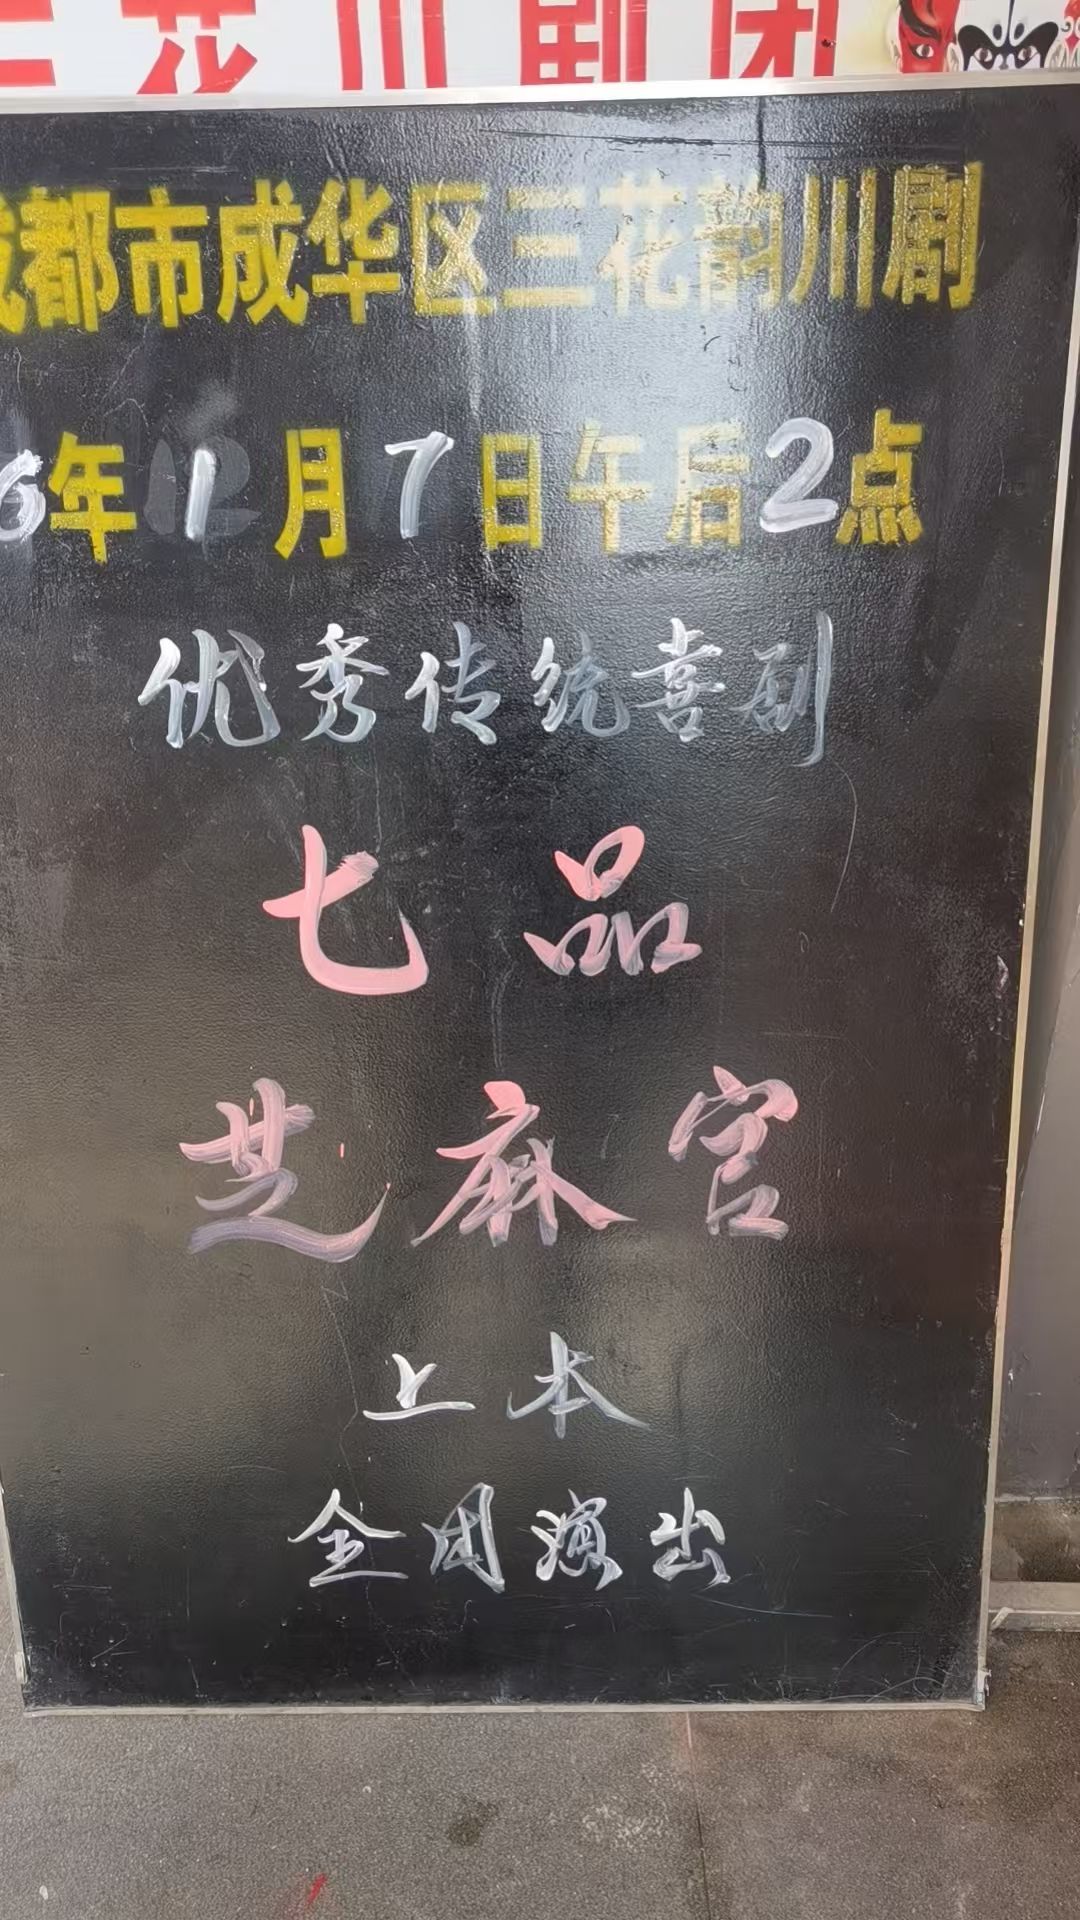 三花川剧团
成都市成华区三花韵川剧
6年1月7日午后2点
优秀传统喜剧
七品
芝麻官
上本
全团演出